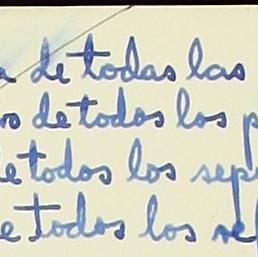 a de todas las
os de todos los p
de todos los sepu
e todos los rel